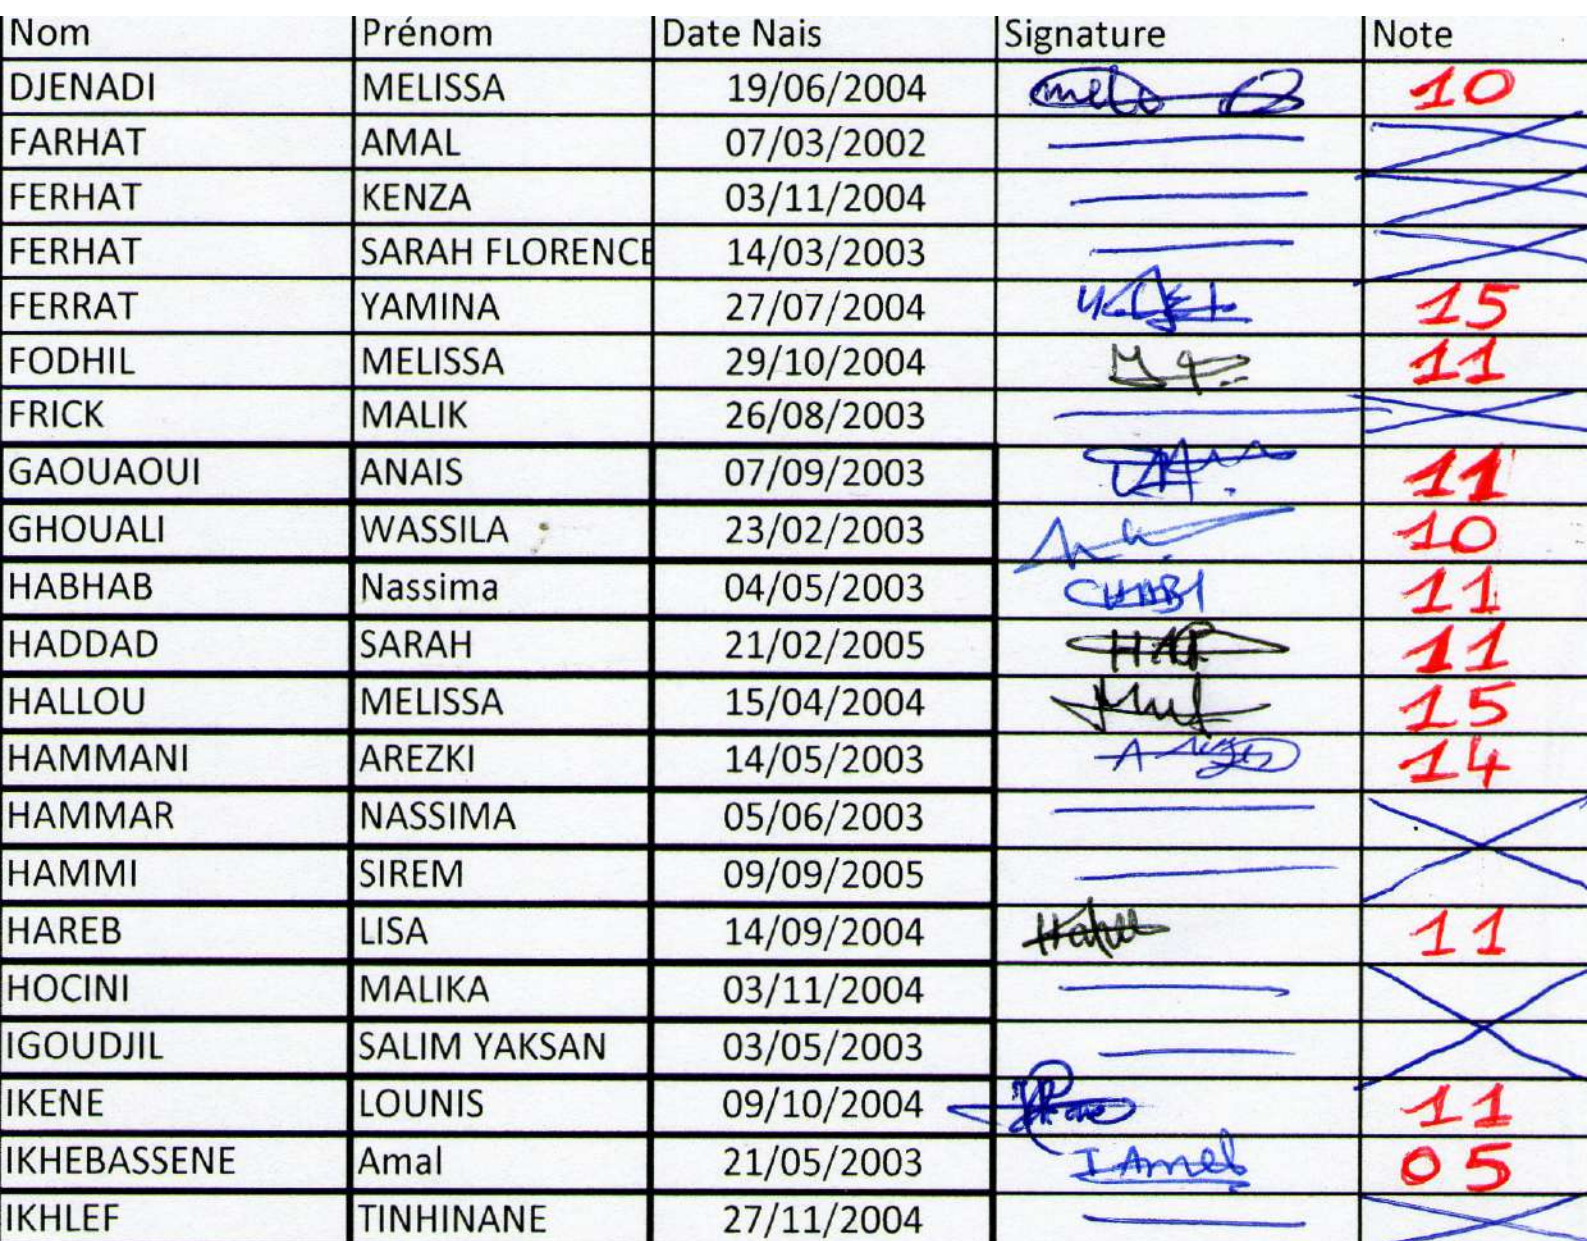 Nom Prénom Date Nais Signature Note
DJENADI MELISSA 19/06/2004 10
FARHAT AMAL 07/03/2002
FERHAT KENZA 03/11/2004
FERHAT SARAH FLORENCE 14/03/2003
FERRAT YAMINA 27/07/2004 15
FODHIL MELISSA 29/10/2004 11
FRICK MALIK 26/08/2003
GAOUAOUI ANAIS 07/09/2003 11
GHOUALI WASSILA 23/02/2003 10
HABHAB Nassima 04/05/2003 11
HADDAD SARAH 21/02/2005 11
HALLOU MELISSA 15/04/2004 15
HAMMANI AREZKI 14/05/2003 14
HAMMAR NASSIMA 05/06/2003
HAMMI SIREM 09/09/2005
HAREB LISA 14/09/2004 11
HOCINI MALIKA 03/11/2004
IGOUDJIL SALIM YAKSAN 03/05/2003
IKENE LOUNIS 09/10/2004 11
IKHEBASSENE Amal 21/05/2003 I Amel 05
IKHLEF TINHINANE 27/11/2004